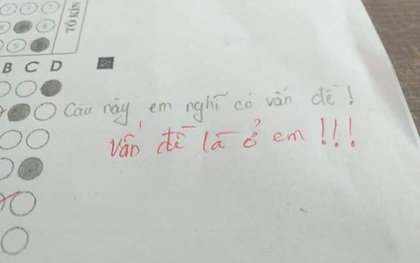 TÔ KÍN
B C D
Câu này, em nghĩ có vấn đề!
Vấn đề là ở em !!!